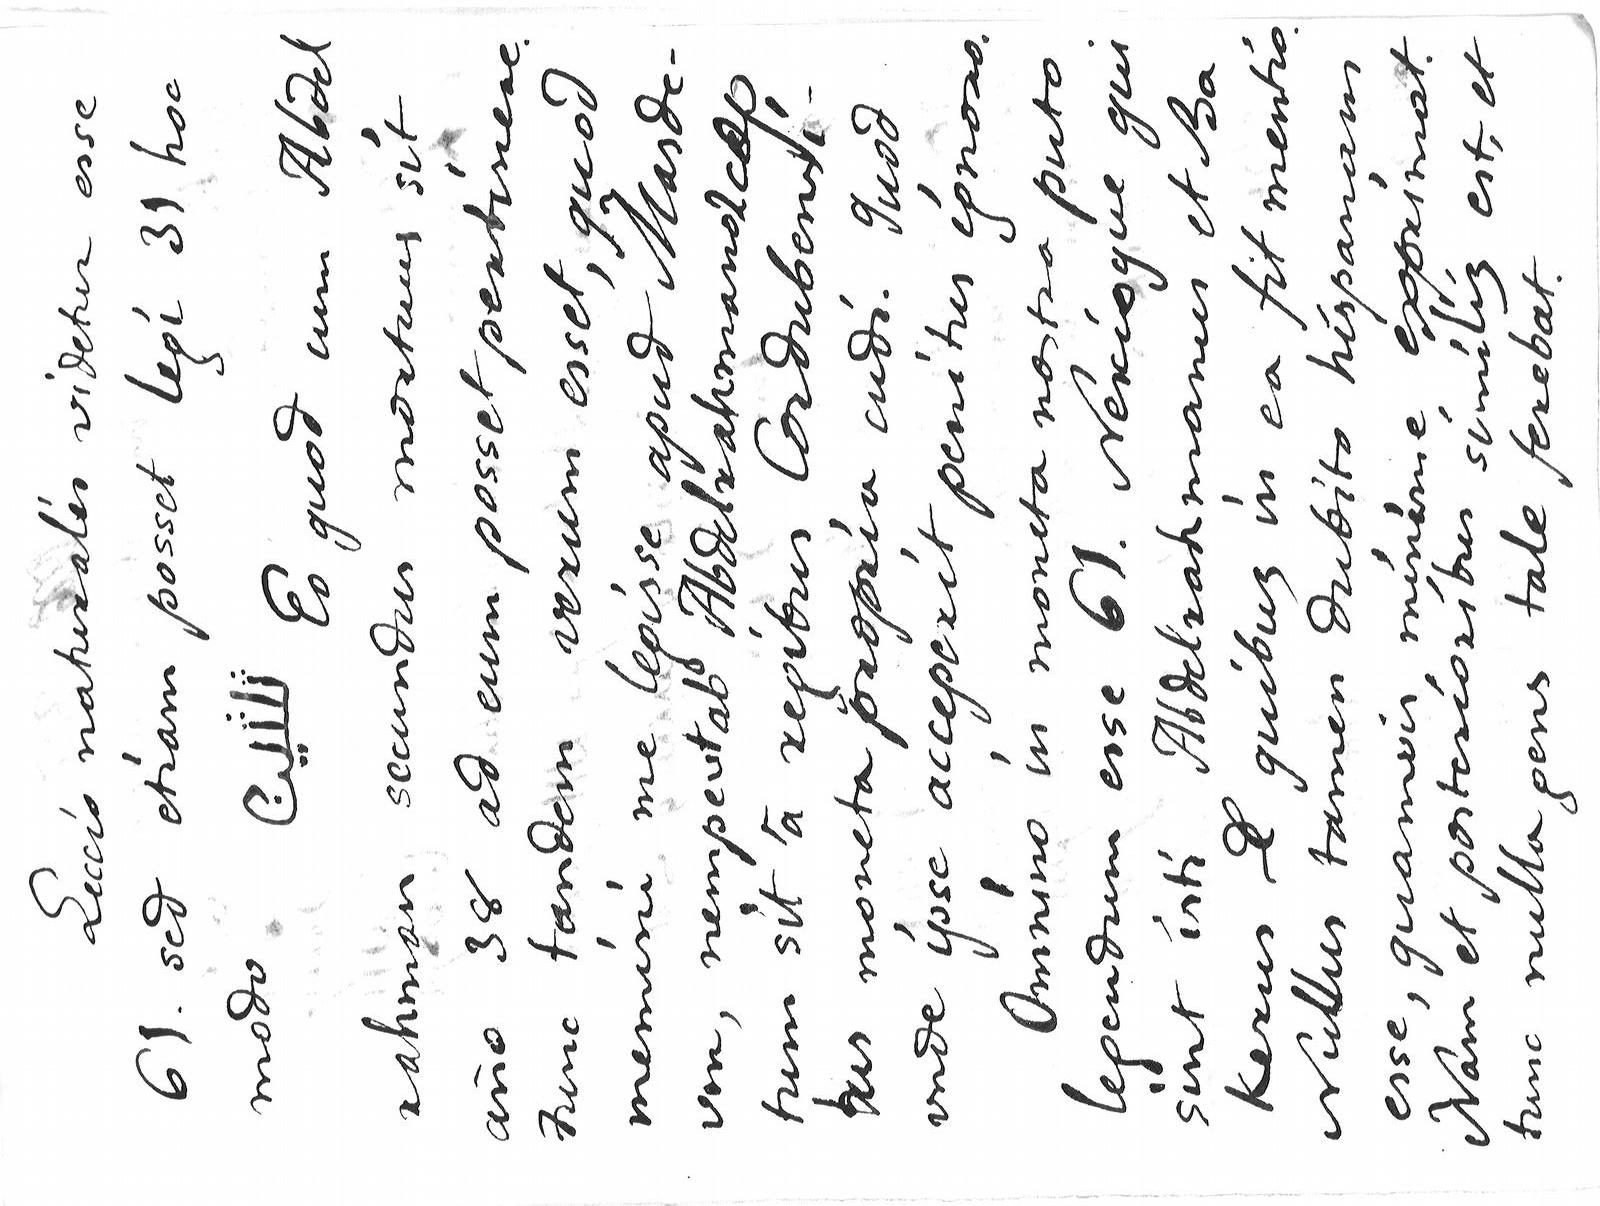 Leccio naturalis videtur esse
61. sed etiam posset legi 31 hoc
modo ثلثين Eo quod cum Abdel
rahman secundus mortuus sit
año 38 ad eum posset pertinere.
Tunc tandem verum esset, quod
memini me legisse apud Masde-
vm, nempe ab Abdelrahmano
tum sit à regibus Cordubensi-
bus moneta propria cudi. Quod
vnde ipse acceperit penitus ignoro.
Omnino in moneta nostra puto
legendum esse 61. Nescioque qui
sint isti Abdelrahmanus et Ba
Kerus de quibus in ea fit mentio.
Nullus tamen dubito hispanam
esse, quamvis minime exprimat.
Nam et posterioribus similis est, et
tunc nulla gens tale ferebat.